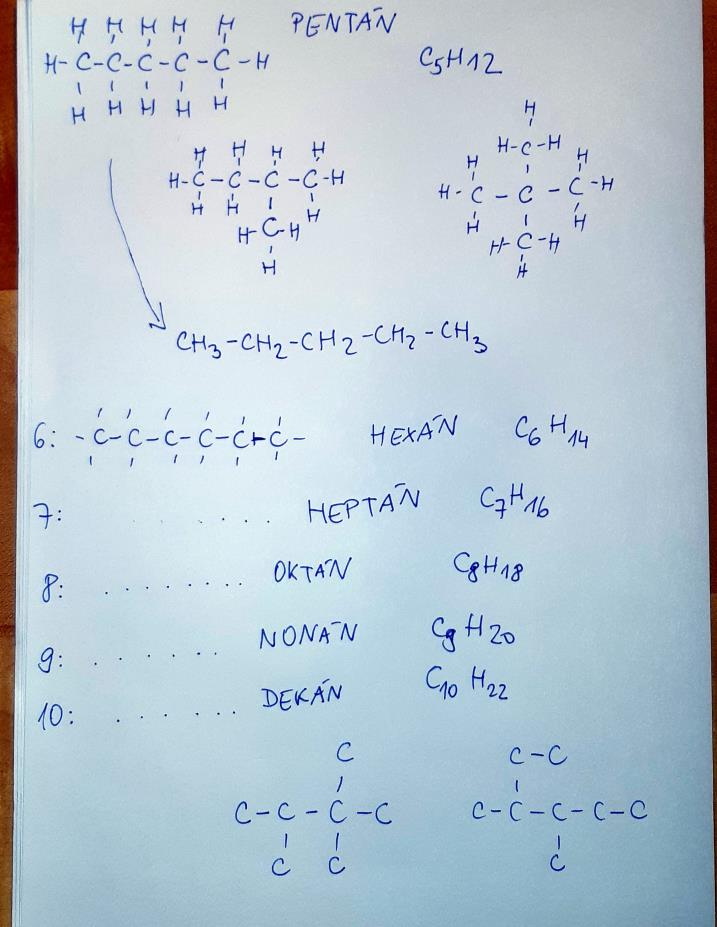 H H H H H PENTÁN
H-C-C-C-C-C-H C5H12
H H H H H
H
H-C-H
H H H H
H-C-C-C-C-H
H H H
H-C-H
H
H H
H-C-C-C-H
H H
H-C-H
H
CH3-CH2-CH2-CH2-CH3
6: -C-C-C-C-C-C- HEXÁN C6H14
7: . . . . . HEPTÁN C7H16
8: . . . . . . . . OKTÁN C8H18
9: . . . . . . . NONÁN C9H20
10: . . . . . . . DEKÁN C10H22
C C-C
C-C-C-C C-C-C-C-C
C C C